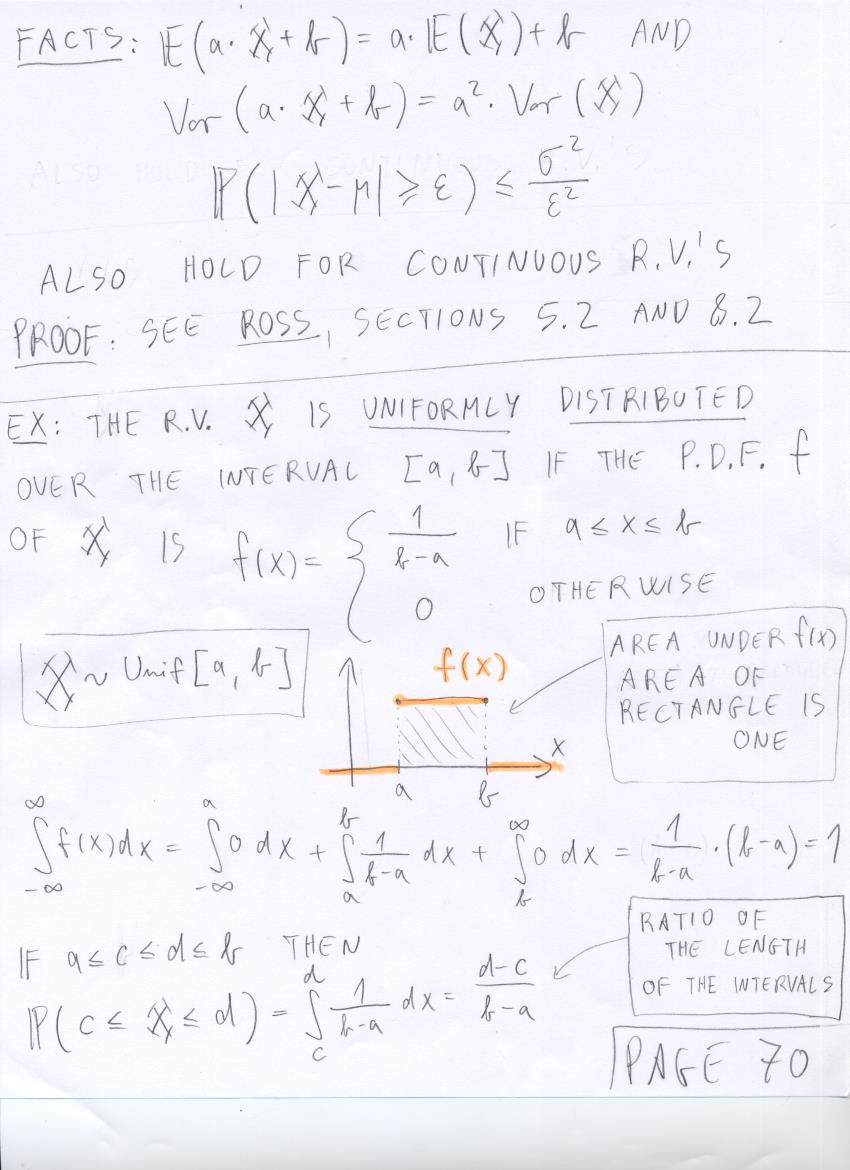 FACTS: 𝔼(a·X+b) = a·𝔼(X)+b AND
Var(a·X+b) = a²·Var(X)
ℙ(|X-μ| ≥ ε) ≤ σ²/ε²
ALSO HOLD FOR CONTINUOUS R.V.'S
PROOF: SEE ROSS, SECTIONS 5.2 AND 8.2
EX: THE R.V. X IS UNIFORMLY DISTRIBUTED
OVER THE INTERVAL [a, b] IF THE P.D.F. f
OF X IS f(x) = { 1/(b-a) IF a ≤ x ≤ b
0 OTHERWISE
X ~ Unif[a, b]
f(x)
x
a b
AREA UNDER f(x)
AREA OF
RECTANGLE IS
ONE
∫_{-∞}^{∞} f(x)dx = ∫_{-∞}^{a} 0 dx + ∫_{a}^{b} 1/(b-a) dx + ∫_{b}^{∞} 0 dx = 1/(b-a)·(b-a) = 1
IF a ≤ c ≤ d ≤ b THEN
ℙ(c ≤ X ≤ d) = ∫_{c}^{d} 1/(b-a) dx = (d-c)/(b-a)
RATIO OF
THE LENGTH
OF THE INTERVALS
PAGE 70